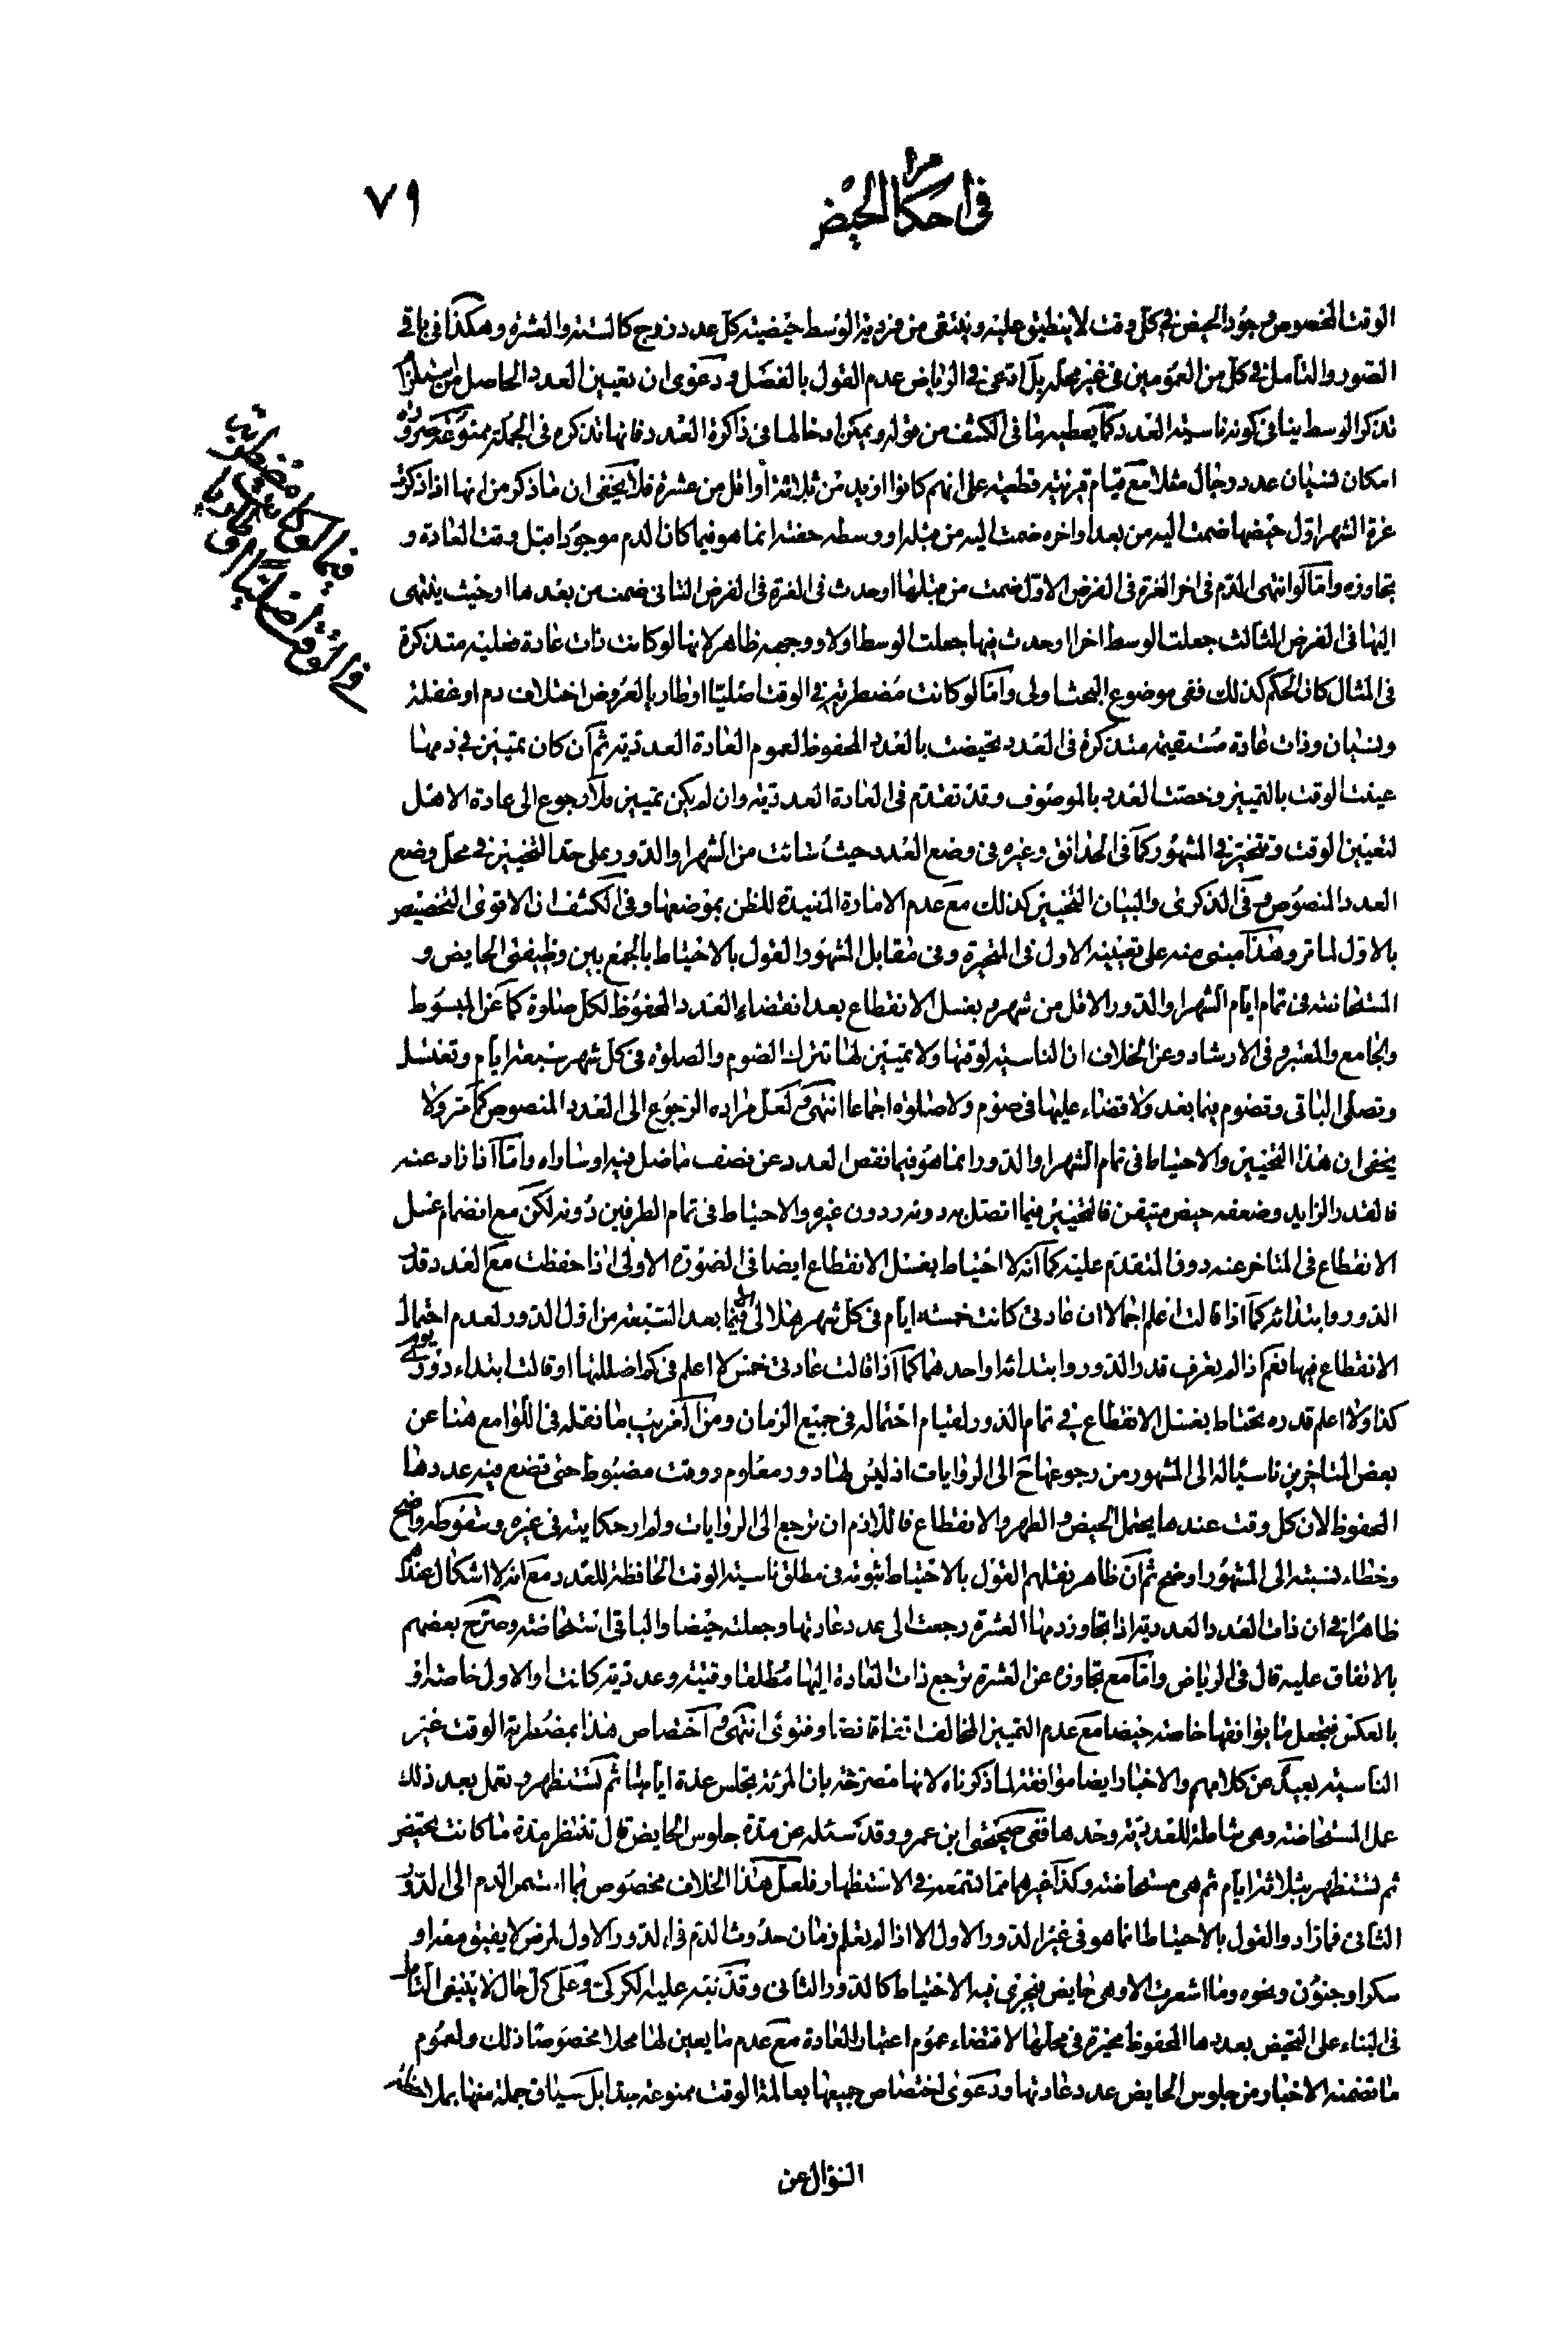 في احكام الحيض
٧٩
الوقت المخصوص وجود الحيض في كل وقت لا ينطبق عليه وينتفى من فردية الوسط حيضيته كل عدد زوج كالستة والعشرة وهكذا في باقي
الصور والتأمل في كل من العمومين في غير محله بل ادعى في الرياض عدم القول بالفصل ودعوى ان تعيين العدد الحاصل من استلزام
تذكر الوسط ينافي كونه ناسية العدد كما يعطيه ما في الكشف من قوله ويمكن ادخالها في ذاكرة العدد فانها تذكره في الجملة ممنوعة ضرورة
امكان نسيان عدد رجال مثلا مع قيام قرينة قطعية على انهم كانوا ازيد من ثلاثة او اقل من عشرة فلا يخفى ان ما ذكر من انها اذا ذكرت
غرة الشهر اول حيضها ضمت اليه من بعد او اخره ضمت اليه من قبله او وسطه حفته انما هو فيما كان الدم موجودا قبل وقت العادة و
تجاوزه واما لو انتهى الدم في اخر الغرة في الفرض الاول ضمت من قبلها او حدث في الغرة في الفرض الثاني ضمت من بعدها او حيث ينتهى
اليها في الفرض الثالث جعلت الوسط اخرا او حدث فيها جعلت الوسط اولا ووجهه ظاهر لانها لو كانت ذات عادة فعلية متذكرة
في المثال كان الحكم كذلك ففى موضوع البحث اولى واما لو كانت مضطربة في الوقت اصليا او طاريا لعروض اختلاف دم او غفلة
ونسيان وذات عادة مستقيمة متذكرة في العدد تحيضت بالعدد المحفوظ لعموم العادة العددية ثم ان كان تمييز في دمها
عينت الوقت بالتمييز وخصت العدد بالموصوف وقد تقدم في العادة العددية وان لم يكن تمييز فلا رجوع الى عادة الاهل
لتعيين الوقت وتتخير في المشهور كما في الحدائق وغيره في وضع العدد حيث شائت من الشهر او الدور على حد التخيير في محل وضع
العدد المنصوص وفي الذكرى والبيان التخيير كذلك مع عدم الامارة المفيدة للظن بموضعها وفي الكشف ان الاقوى التخصيص
بالاول لما مر وهذا مبنى منه على تعيينه الاول في المتحيرة وفي مقابل المشهور القول بالاحتياط بالجمع بين وظيفتى الحايض و
المستحاضة في تمام ايام الشهر او الدور الاقل من شهر وبغسل الانقطاع بعد انقضاء العدد المحفوظ لكل صلوة كما عن المبسوط
والجامع والمعتبر وفي الارشاد وعن الخلاف ان الناسية لوقتها ولا تمييز لها تترك الصوم والصلوة في كل شهر سبعة ايام وتغتسل
وتصلى الباقي وتصوم فيما بعد ولا قضاء عليها في صوم ولا صلوة اجماعا انتهى ولعل مراده الرجوع الى العدد المنصوص كما مر ولا
يخفى ان هذا التخيير والاحتياط في تمام الشهر او الدور انما هو فيما نقص العدد عن نصف ما ضل فيه او ساواه واما اذا زاد عنه
فالقدر الزايد وضعفه حيض متيقن فالتخيير فيما اتصل به دونه دون غيره والاحتياط في تمام الطرفين دونه لكن مع انضمام غسل
الانقطاع في المتاخر عنه دون المتقدم عليه كما انه لا احتياط بغسل الانقطاع ايضا في الصورة الاولى اذا حفظت مع العدد قدر
الدور وابتدائه كما اذا قالت اعلم اجمالا ان عادتى كانت خمسة ايام في كل شهر هلالى الا فيما بعد التسعة من اول الدور لعدم احتمال
الانقطاع فيها نعم اذا لم يعرف قدر الدور وابتدائه او احدهما كما اذا قالت عادتى خمس لا اعلم في كم اضللتها او قالت ابتداء دورى يوم
كذا ولا اعلم قدره تحتاط بغسل الانقطاع في تمام الدور لقيام احتماله في جميع الزمان ومن الغريب ما نقله في اللوامع هنا عن
بعض المتاخرين ناسبا له الى المشهور من رجوعها ح الى الروايات اذ ليس لها دور معلوم ووقت مضبوط حتى تضع فيه عددها
المحفوظ لان كل وقت عندها يحتمل الحيض والطهر والانقطاع فاللازم ان ترجع الى الروايات ولم ار حكايته في غيره وسقوطه واضح
وخطاء نسبته الى المشهور اوضح ثم ان ظاهر نقلهم القول بالاحتياط ثبوته في مطلق ناسية الوقت الحافظة للعدد مع انه لا اشكال عندهم
ظاهرا في ان ذات العدد العددية اذا تجاوز دمها العشرة رجعت الى عدد عادتها وجعلته حيضا والباقي استحاضة وصرح بعضهم
بالاتفاق عليه قال في الرياض واما مع تجاوزه عن العشرة ترجع ذات العادة اليها مطلقا وقتية وعددية كانت او الاول خاصة او
بالعكس فتجعل ما يوافقها خاصة حيضا مع عدم التمييز المخالف اتفاقا نصا وفتوى انتهى واختصاص هذا بمضطربة الوقت غير
الناسية بعيد عن كلامهم والاخبار ايضا موافقة لما ذكرناه لانها مصرحة بان المرئة تجلس عدة ايامها ثم تستظهر وتعمل بعد ذلك
عمل المستحاضة وهى شاملة للعددية وحدها ففى صحيحتى ابن عمرو وقد سئله عن مدة جلوس الحايض قال تنتظر مدة ما كانت تحيض
ثم تستظهر بثلاثة ايام ثم هى مستحاضة وكذا غيرهما مما تسمعه في الاستظهار فلعل هذا الخلاف مخصوص بما استمر الدم الى الدور
الثانى فما زاد والقول بالاحتياط انما هو في غير الدور الاول الا اذا لم يعلم زمان حدوث الدم في الدور الاول لمرض لا يفيق معه او
سكر او جنون ونحوه وما اشعرت الا وهى حايض فيجرى فيه الاحتياط كالدور الثانى وقد نبه عليه الكركى وعلى كل حال لا ينبغى التامل
في البناء على التحيض بعددها المحفوظ مخيرة في محلها لاقتضاء عموم اعتبار العادة مع عدم ما يعين لها محلا مخصوصا ذلك ولعموم
ما تضمنه الاخبار من جلوس الحايض عدد عادتها ودعوى اختصاص جميعها بعالمة الوقت ممنوعة جدا بل سياق جملة منها بملاحظة
السؤال عن